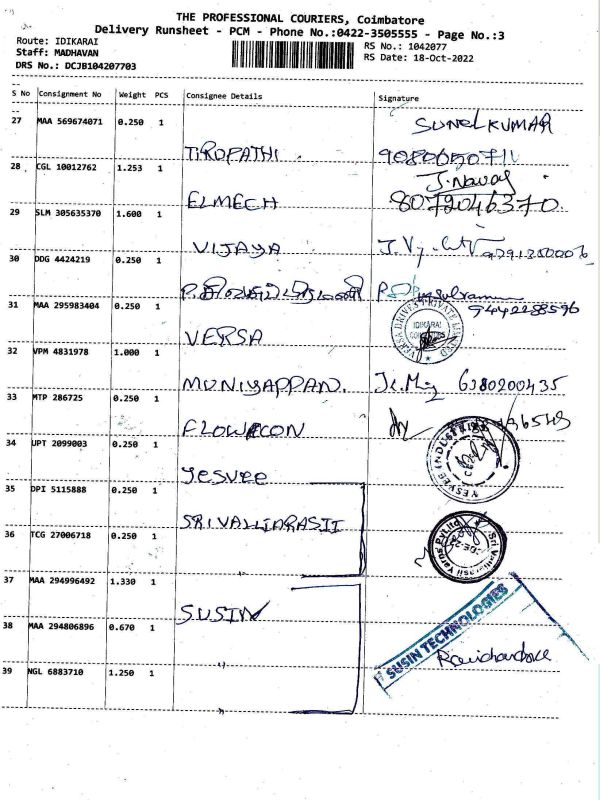 THE PROFESSIONAL COURIERS, Coimbatore
Delivery Runsheet - PCM - Phone No.:0422-3505555 - Page No.:3
Route: IDIKARAI
RS No.: 1042077
Staff: MADHAVAN
RS Date: 18-Oct-2022
DRS No.: DCJB104207703
S No Consignment No Weight PCS Consignee Details Signature
27 MAA 569674071 0.250 1
SUNEL KUMAR
TIROPATHI
28 CGL 10012762 1.253 1
J. Navas
ELMECH 8072046370
29 SLM 305635370 1.600 1
VIJAYA
30 DDG 4424219 0.250 1
31 MAA 295983404 0.250 1
9442288596
VERSA
VERSA DRIVES PRIVATE LIMITED
IDIKARAI
32 VPM 4831978 1.000 1
MUNIYAPPAN. 6380200435
33 MTP 286725 0.250 1
FLOWCON
34 UPT 2099003 0.250 1
YESVEE
YESVEE INDUSTRIES
35 DPI 5115888 0.250 1
SRIVALLIARASII
Sri Valliarasii Yarns Pvt Ltd
36 TCG 27006718 0.250 1
37 MAA 294996492 1.330 1
SUSIN
SUSIN TECHNOLOGIES
38 MAA 294806896 0.670 1
39 NGL 6883710 1.250 1